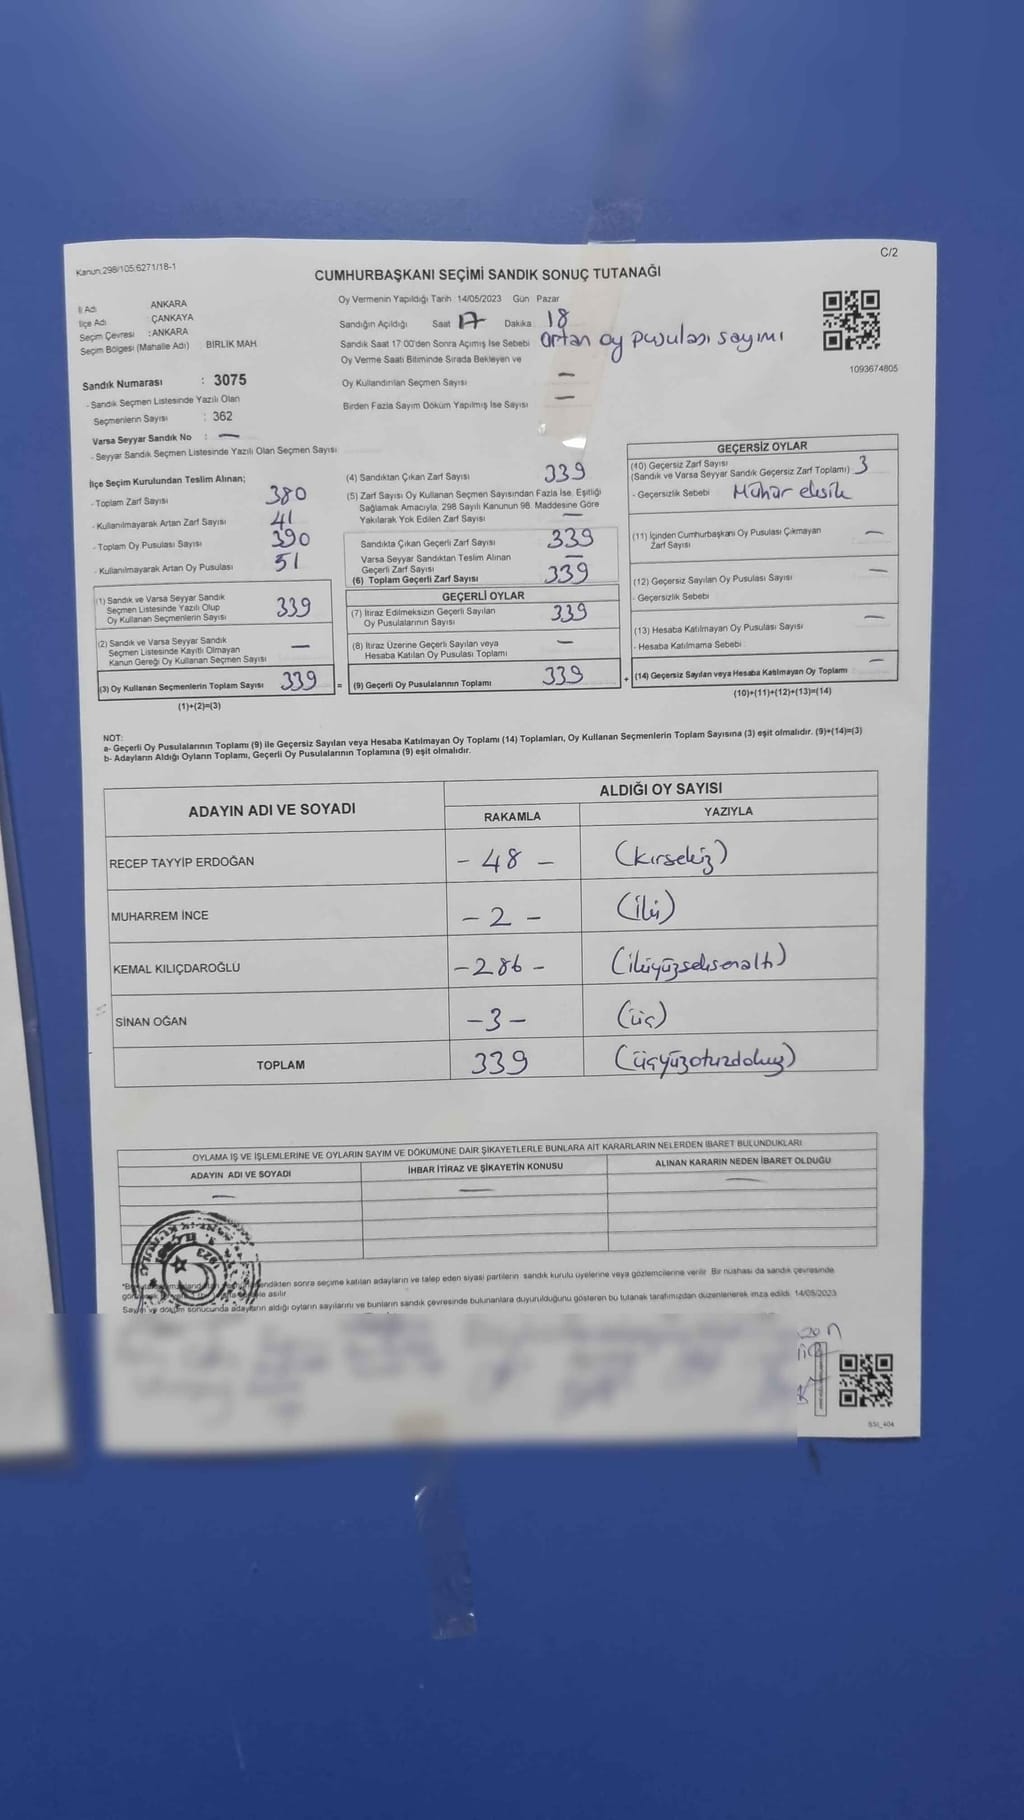 C/2
Kanun.298/105:6271/18-1
CUMHURBAŞKANI SEÇİMİ SANDIK SONUÇ TUTANAĞI
İl Adı ANKARA
İlçe Adı ÇANKAYA
Seçim Çevresi : ANKARA
Seçim Bölgesi (Mahalle Adı) BIRLIK MAH
Sandık Numarası : 3075
- Sandık Seçmen Listesinde Yazılı Olan
Seçmenlerin Sayısı : 362
Varsa Seyyar Sandık No : —
- Seyyar Sandık Seçmen Listesinde Yazılı Olan Seçmen Sayısı
Oy Vermenin Yapıldığı Tarih 14/05/2023 Gün Pazar
Sandığın Açıldığı Saat 17 Dakika 18
Sandık Saat 17:00'den Sonra Açımış İse Sebebi artan oy pusulası sayımı
Oy Verme Saati Bitiminde Sırada Bekleyen ve
Oy Kullandırılan Seçmen Sayısı —
Birden Fazla Sayım Döküm Yapılmış İse Sayısı —
1093674805
İlçe Seçim Kurulundan Teslim Alınan;
- Toplam Zarf Sayısı 380
- Kullanılmayarak Artan Zarf Sayısı 41
- Toplam Oy Pusulası Sayısı 390
- Kullanılmayarak Artan Oy Pusulası 51
(1) Sandık ve Varsa Seyyar Sandık
Seçmen Listesinde Yazılı Olup
Oy Kullanan Seçmenlerin Sayısı 339
(2) Sandık ve Varsa Seyyar Sandık
Seçmen Listesinde Kayıtlı Olmayan
Kanun Gereği Oy Kullanan Seçmen Sayısı —
(3) Oy Kullanan Seçmenlerin Toplam Sayısı 339 =
(1)+(2)=(3)
(4) Sandıktan Çıkan Zarf Sayısı 339
(5) Zarf Sayısı Oy Kullanan Seçmen Sayısından Fazla İse, Eşitliği
Sağlamak Amacıyla, 298 Sayılı Kanunun 98. Maddesine Göre
Yakılarak Yok Edilen Zarf Sayısı —
Sandıkta Çıkan Geçerli Zarf Sayısı 339
Varsa Seyyar Sandıktan Teslim Alınan
Geçerli Zarf Sayısı —
(6) Toplam Geçerli Zarf Sayısı 339
GEÇERLİ OYLAR
(7) İtiraz Edilmeksizin Geçerli Sayılan
Oy Pusulalarının Sayısı 339
(8) İtiraz Üzerine Geçerli Sayılan veya
Hesaba Katılan Oy Pusulası Toplamı —
(9) Geçerli Oy Pusulalarının Toplamı 339 +
GEÇERSİZ OYLAR
(10) Geçersiz Zarf Sayısı
(Sandık ve Varsa Seyyar Sandık Geçersiz Zarf Toplamı) 3
- Geçersizlik Sebebi Mühür eksik
(11) İçinden Cumhurbaşkanı Oy Pusulası Çıkmayan
Zarf Sayısı —
(12) Geçersiz Sayılan Oy Pusulası Sayısı —
- Geçersizlik Sebebi
(13) Hesaba Katılmayan Oy Pusulası Sayısı —
- Hesaba Katılmama Sebebi
(14) Geçersiz Sayılan veya Hesaba Katılmayan Oy Toplamı —
(10)+(11)+(12)+(13)=(14)
NOT:
a- Geçerli Oy Pusulalarının Toplamı (9) ile Geçersiz Sayılan veya Hesaba Katılmayan Oy Toplamı (14) Toplamları, Oy Kullanan Seçmenlerin Toplam Sayısına (3) eşit olmalıdır. (9)+(14)=(3)
b- Adayların Aldığı Oyların Toplamı, Geçerli Oy Pusulalarının Toplamına (9) eşit olmalıdır.
ADAYIN ADI VE SOYADI ALDIĞI OY SAYISI
RAKAMLA YAZIYLA
RECEP TAYYİP ERDOĞAN - 48 - (Kırsekiz)
MUHARREM İNCE - 2 - (iki)
KEMAL KILIÇDAROĞLU - 286 - (ikiyüzseksenaltı)
SİNAN OĞAN - 3 - (üç)
TOPLAM 339 (üçyüzotuzdokuz)
OYLAMA İŞ VE İŞLEMLERİNE VE OYLARIN SAYIM VE DÖKÜMÜNE DAİR ŞİKAYETLERLE BUNLARA AİT KARARLARIN NELERDEN İBARET BULUNDUKLARI
ADAYIN ADI VE SOYADI İHBAR İTİRAZ VE ŞİKAYETİN KONUSU ALINAN KARARIN NEDEN İBARET OLDUĞU
— — —
endikten sonra seçime katılan adayların ve talep eden siyasi partilerin sandık kurulu üyelerine veya gözlemcilerine verilir. Bir nüshası da sandık çevresinde
asılır
Sayım ve döküm sonucunda adayların aldığı oyların sayılarını ve bunların sandık çevresinde bulunanlara duyurulduğunu gösteren bu tutanak tarafımızdan düzenlenerek imza edildi. 14/05/2023